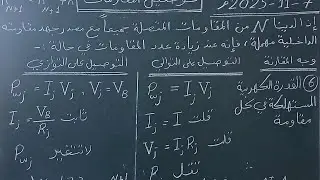 2025-11-7
إذا لدينا N من المقاومات المتصلة جميعًا مع مصدر جهد مقاومته
الداخلية مهملة، فإنه عند زيادة عدد المقاومات في حالة:-
وجه المقارنة التوصيل على التوالي التوصيل على التوازي
⑥ القدرة الكهربية
المستهلكة في كل
مقاومة
P_wj = I_j V_j
قلت I_j = I
قلت V_j = I_j R_j
تقل P_wj
P_wj = I_j V_j , V_j = V_B
ثابت I_j = V_B / R_j
لا تتغير P_wj